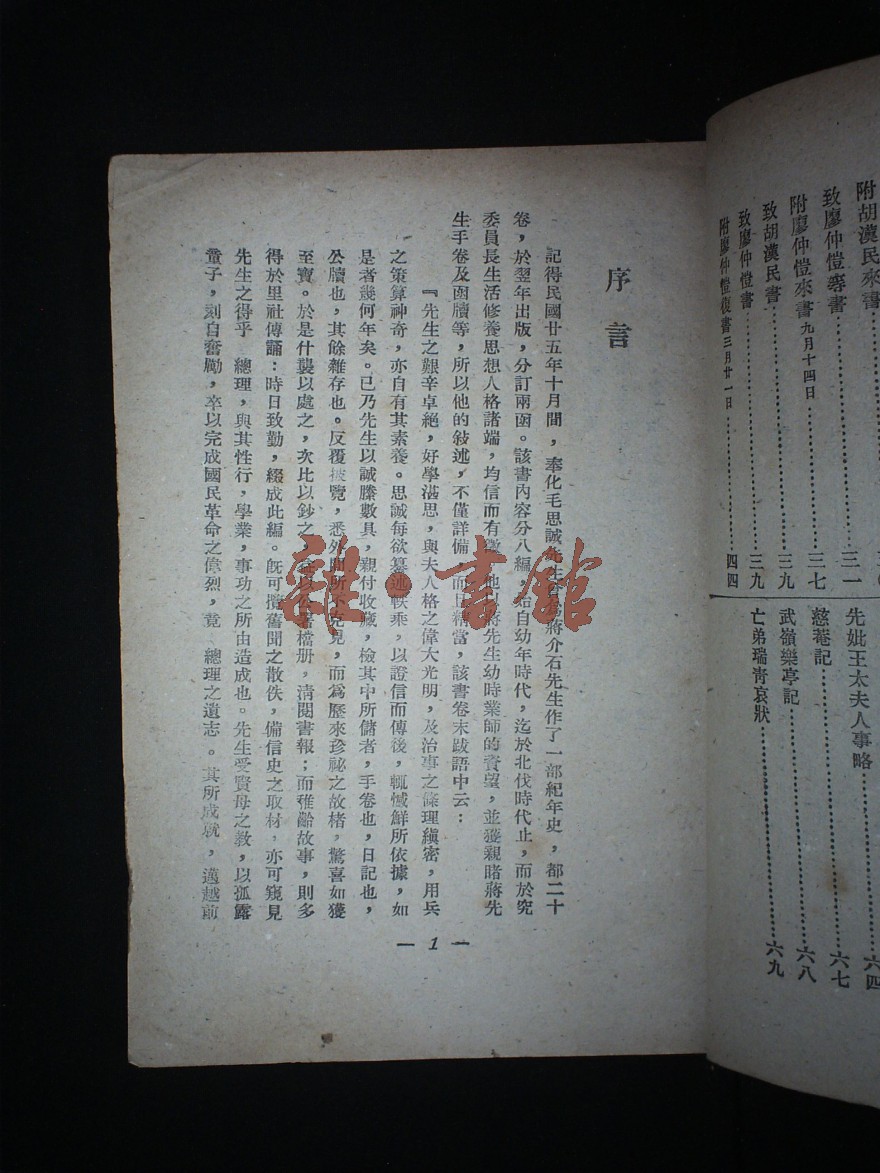 附胡漢民來書
致廖仲愷等書……三一
附廖仲愷來書九月十四日……三七
致胡漢民書……三九
致廖仲愷書……三九
附廖仲愷復書三月廿一日……四四
先妣王太夫人事略……六四
慈菴記……六七
武嶺樂亭記……六八
亡弟瑞青哀狀……六九
序言
記得民國廿五年十月間，奉化毛思誠先生曾為蔣介石先生作了一部紀年史，都二十
卷，於翌年出版，分訂兩函。該書內容分八編，始自幼年時代，迄於北伐時代止，而於究
委員長生活修養思想人格諸端，均信而有徵，他以蔣先生幼時業師的資望，並獲親睹蔣先
生手卷及函牘等，所以他的敍述，不僅詳備，而且精當，該書卷末跋語中云：
『先生之艱辛卓絕，好學湛思，與夫人格之偉大光明，及治事之條理縝密，用兵
之策算神奇，亦自有其素養。思誠每欲纂述軼乘，以證信而傳後，輒憾鮮所依據，如
是者幾何年矣。已乃先生以誠縢數具，親付收藏，檢其中所儲者，手卷也，日記也，
公牘也，其餘雜存也。反覆披覽，悉外間所不克見，而為歷來珍祕之故楮，驚喜如獲
至寶。於是什襲以處之，次比以鈔之，益以公署檔册，清閱書報；而稚齡故事，則多
得於里社傳誦：時日致勤，綴成此編。旣可攬舊聞之散佚，備信史之取材，亦可窺見
先生之得乎　總理，與其性行，學業，事功之所由造成也。先生受賢母之教，以孤露
童子，刻自奮勵，卒以完成國民革命之偉烈，竟　總理之遺志。其所成就，邁越前
— 1 —
雜·書館